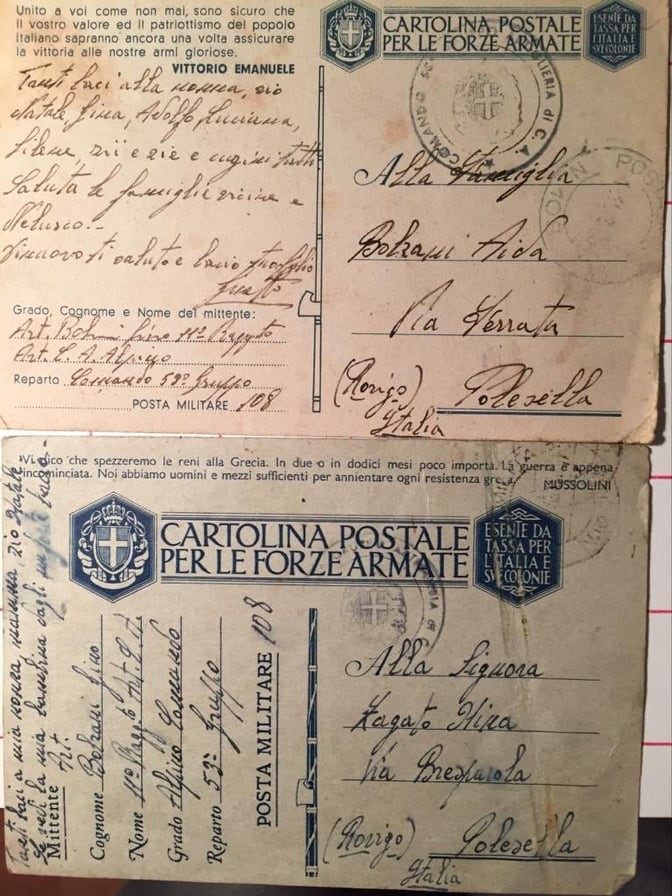 Unito a voi come non mai, sono sicuro che
il vostro valore ed il patriottismo del popolo
italiano sapranno ancora una volta assicurare
la vittoria alle nostre armi gloriose.
VITTORIO EMANUELE
Tanti baci alla nonna, zio
Natale, Gina, Adolfo, Luciana,
zii e zie e cugini tutti
Saluta le famiglie vicine e
ti saluto e bacio tuo figlio
Grado, Cognome e Nome del mittente:
Art. Gino 11º Raggto
Art. C. A. Alpino
Reparto Comando 53º Gruppo
POSTA MILITARE 108
CARTOLINA POSTALE
PER LE FORZE ARMATE
ESENTE DA
TASSA PER
L'ITALIA E
SUE COLONIE
COMANDO
ARTIGLIERIA di C. A.
POS
Alla Famiglia
Bolzani Aida
Via Serrata
(Rovigo) Polesella
Italia
che spezzeremo le reni alla Grecia. In due o in dodici mesi poco importa. La guerra è appena
incominciata. Noi abbiamo uomini e mezzi sufficienti per annientare ogni resistenza greca.
MUSSOLINI
CARTOLINA POSTALE
PER LE FORZE ARMATE
ESENTE DA
TASSA PER
L'ITALIA E
SUE COLONIE
Tanti baci a mia nonna, mamma, zio Natale
la mia
Mittente Art.
Cognome Bolzani Gino
Nome 11º Raggto Art. C. A.
Grado Alpino Comando
Reparto 53º Gruppo
POSTA MILITARE 108
Alla Signora
Zagato Nina
Via Bresparola
(Rovigo) Polesella
Italia